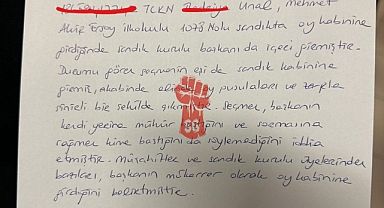 TCKN Ünal, Mehmet
Akif Ersoy ilkokulu 1078 Nolu sandıkta oy kabinine
girdiğinde sandık kurulu başkanı da içeri girmiştir.
Durumu gören seçmenin eşi de sandık kabinine
girmiş, akabinde oy pusulaları ve zarfla
sinirli bir şekilde Seçmen, başkanın
kendi yerine mühür ve sormasına
rağmen kime bastığını da söylemediğini iddia
etmiştir. Müşahitler ve sandık kurulu üyelerinden
bazıları, başkanın mükerrer olarak oy kabinine
girdiğini belirtmiştir.